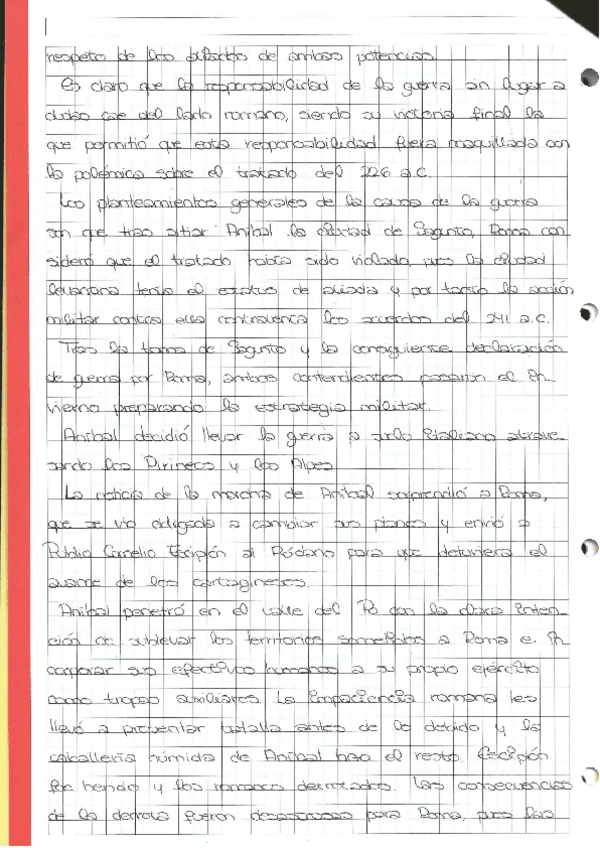 respeto de los aliados de ambas potencias.
Es claro que la responsabilidad de la guerra sin lugar a
dudas cae del lado romano, siendo su victoria final la
que permitió que esta responsabilidad fuera maquillada con
la polémica sobre el tratado del 226 a.C.
Los planteamientos generales de la causa de la guerra
son que tras sitiar Aníbal la ciudad de Sagunto, Roma con
sideró que el tratado había sido violado, pues la ciudad
levantina tenía el estatus de aliada y por tanto la acción
militar contra ella contravenía los acuerdos del 241 a.C.
Tras la toma de Sagunto y la consiguiente declaración
de guerra por Roma, ambos contendientes pasarán el in
vierno preparando la estrategia militar.
Aníbal decidió llevar la guerra a suelo italiano atrave
sando los Pirineos y los Alpes
La noticia de la marcha de Aníbal sorprendió a Roma,
que se vio obligada a cambiar sus planes y envió a
Publio Cornelio Escipión al Ródano para que detuviera el
avance de los cartagineses.
Aníbal penetró en el valle del Po con la clara inten_
ción de sublevar los territorios sometidos a Roma e in
corporar sus efectivos humanos a su propio ejército
como tropas auxiliares. La impaciencia romana les
llevó a presentar batalla antes de lo debido y la
caballería númida de Aníbal hizo el resto. Escipión
fue herido y los romanos derrotados. Las consecuencias
de la derrota fueron desastrosas para Roma, pues las